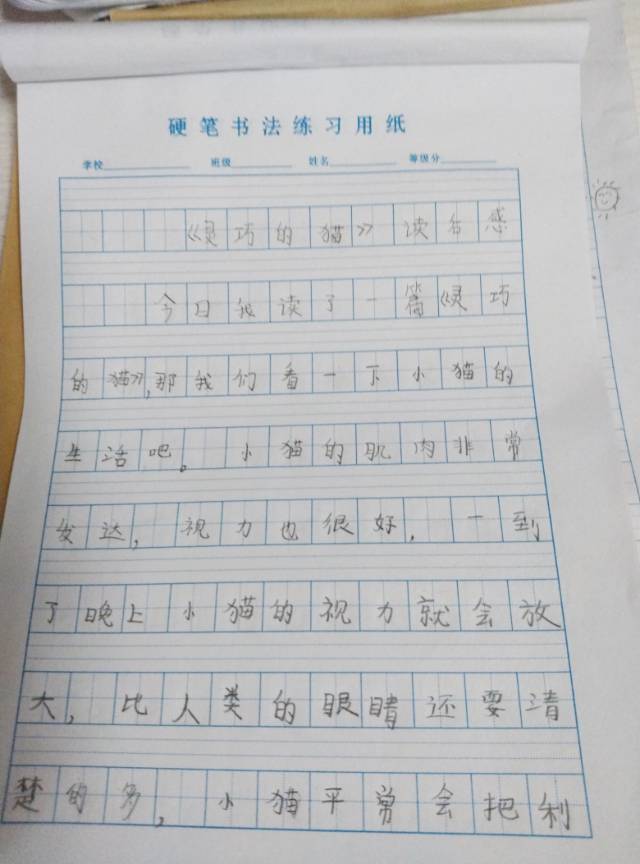 硬笔书法练习用纸
学校 班级 姓名 等级分
《灵巧的猫》读书感
今日我读了一篇《灵巧
的猫》,那我们看一下小猫的
生活吧。小猫的肌肉非常
发达,视力也很好,一到
了晚上小猫的视力就会放
大,比人类的眼睛还要清
楚的多,小猫平常会把利